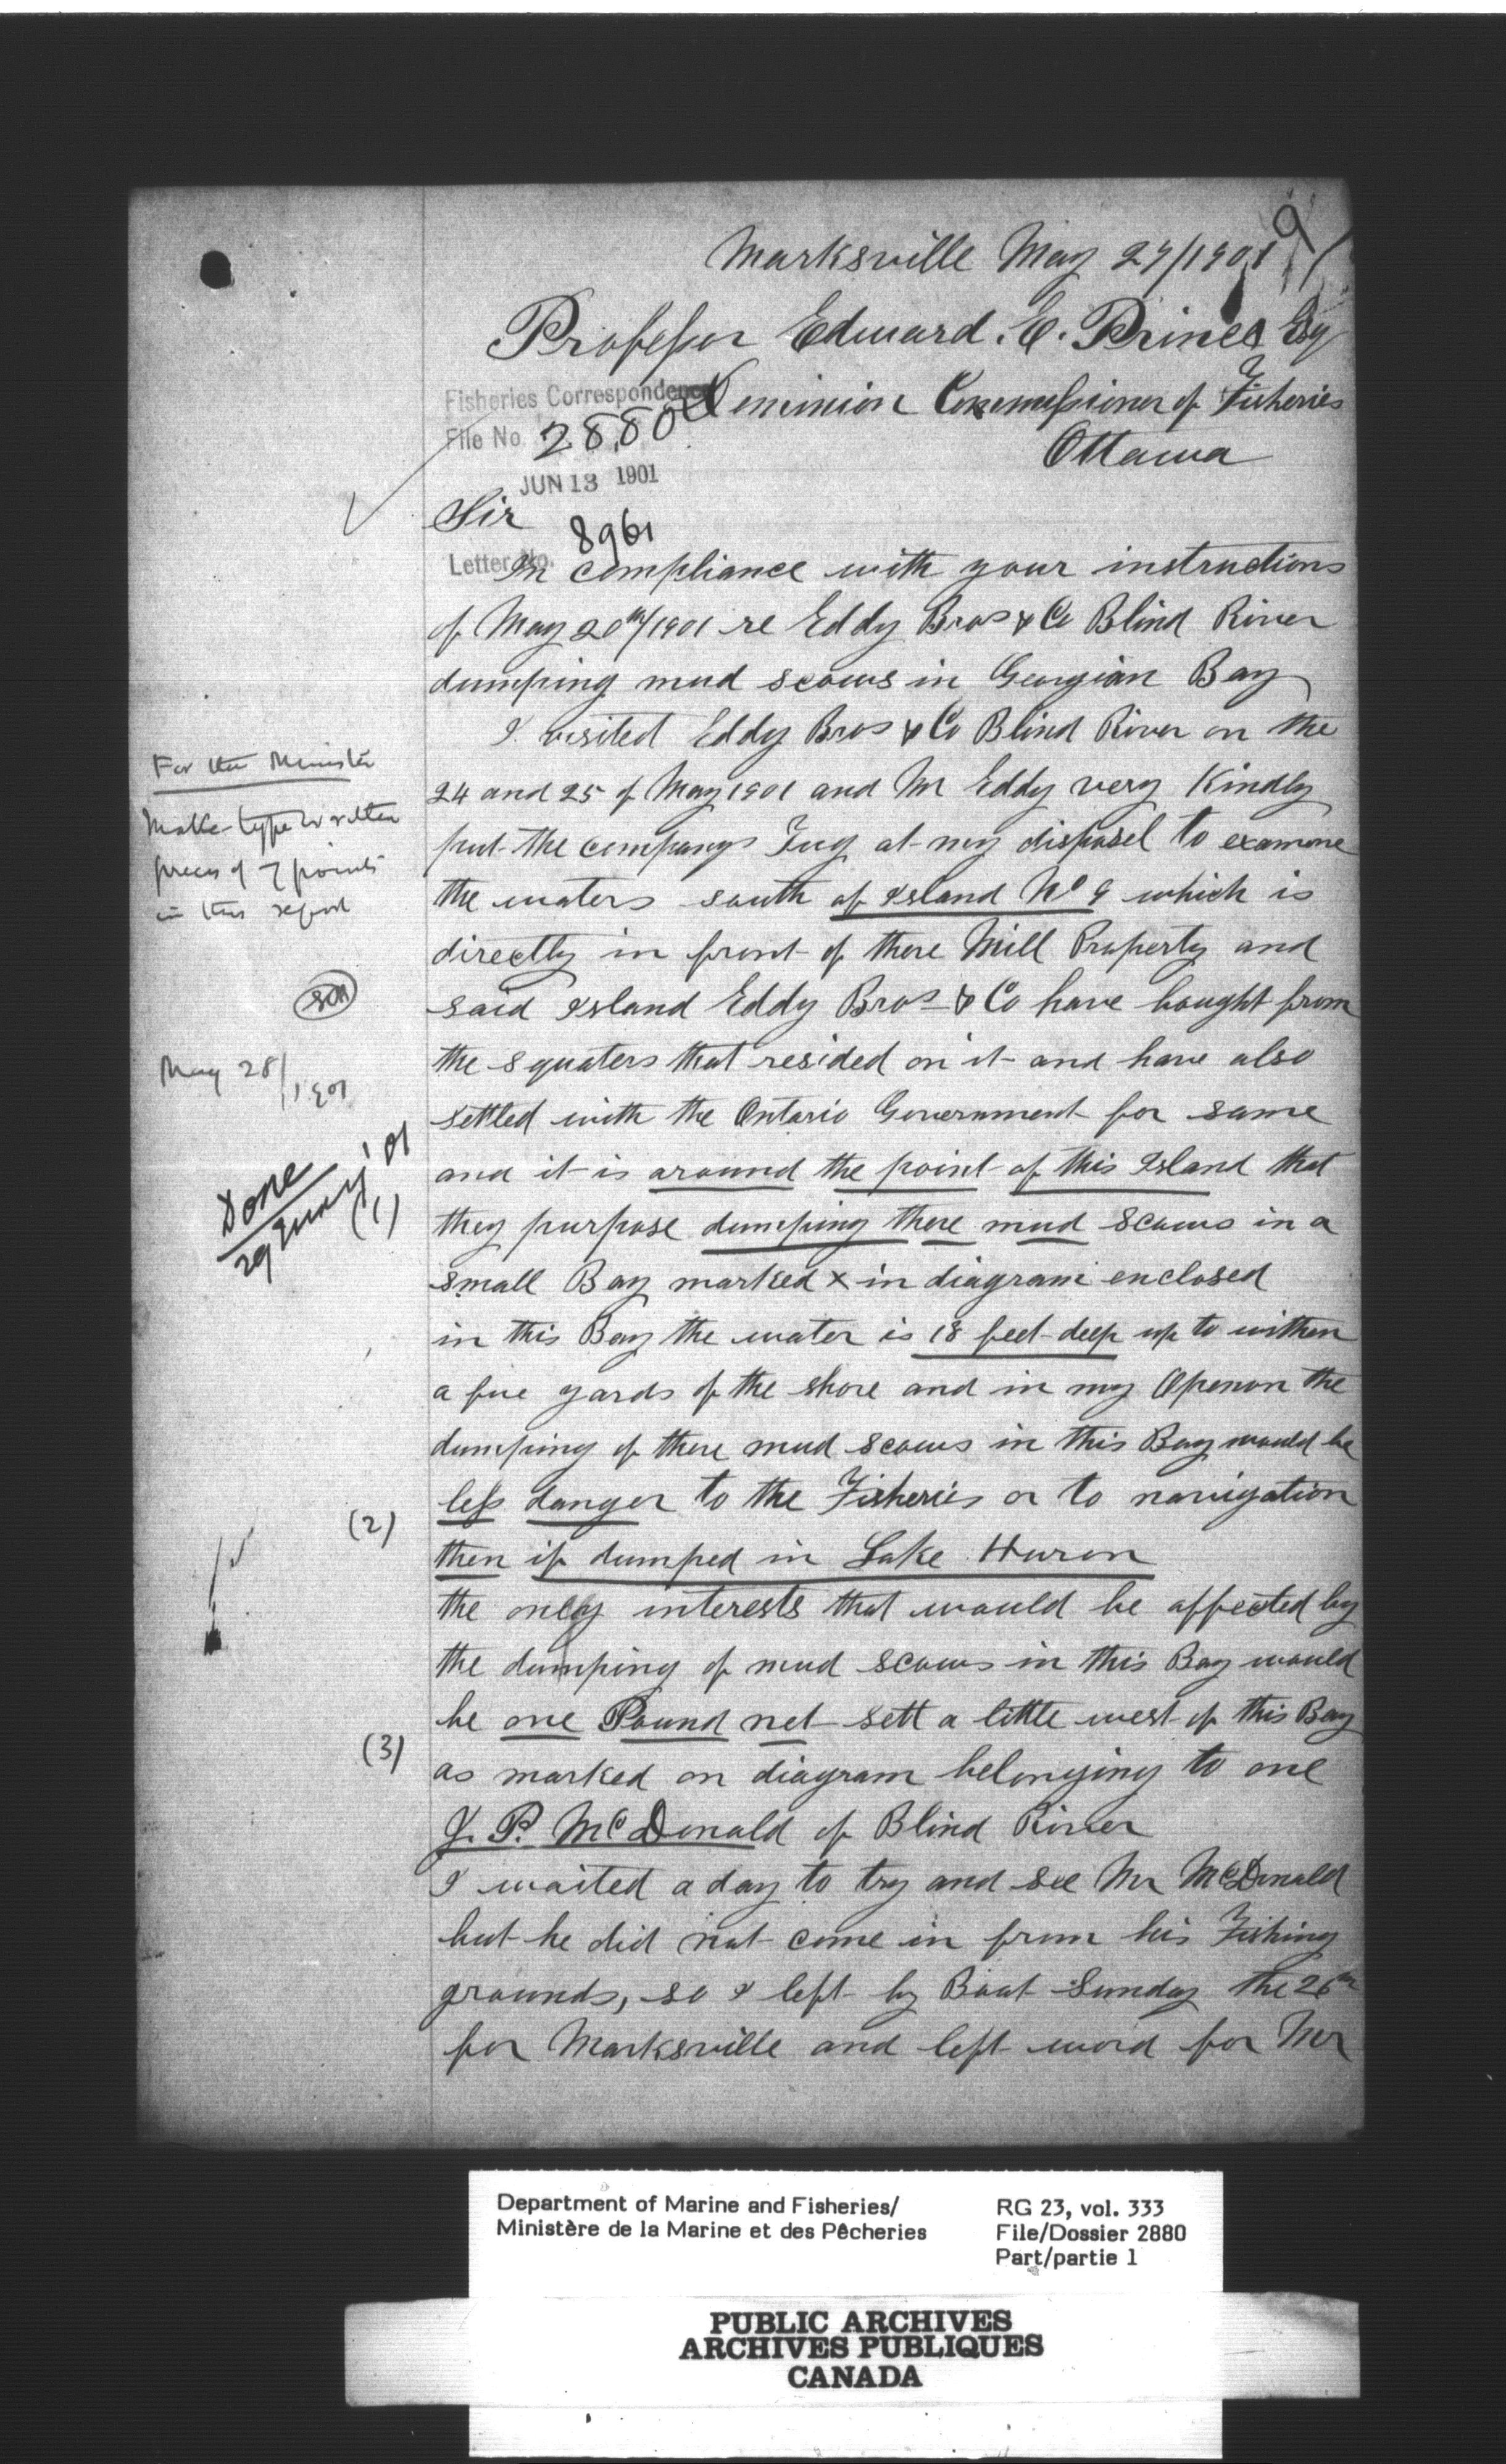 9
Marksville May 27/1901
Professor Edward. E. Prince Esq
Dominion Commissioner of Fisheries
Ottawa
Fisheries Correspondence
File No 2880
JUN 13 1901
Sir
Letter No. 8961
In compliance with your instructions
of May 20th/1901 re Eddy Bros & Co Blind River
dumping mud scows in Georgian Bay
I visited Eddy Bros & Co Blind River on the
24 and 25 of May 1901 and Mr Eddy very Kindly
put the companys Tug at my disposel to examone
the waters south of Island No 9 which is
directly in front of there Mill Property and
said Island Eddy Bros & Co have bought from
the squaters that resided on it and have also
settled with the Ontario Government for same
and it is around the point of this Island that
they purpose dumping there mud scows in a
small Bay marked x in diagram enclosed
in this Bay the water is 18 feet deep up to within
a fue yards of the shore and in my Openon the
dumping of there mud scows in this Bay would be
less danger to the Fisheries or to navigation
then if dumped in Lake Huron
the only interests that would be affected by
the dumping of mud scows in this Bay would
be one Pound net sett a little west of this Bay
as marked on diagram belonging to one
J. P. McDonald of Blind River
I waited a day to try and see Mr McDonald
but he did not come in from his Fishing
grounds, so I left by Boat Sunday the 26th
for Marksville and left word for Mr
For the Minister
Make type written
precis of 7 points
in this report
May 28/1901
Done
29 '01
(1)
(2)
(3)
Department of Marine and Fisheries/
Ministère de la Marine et des Pêcheries
RG 23, vol. 333
File/Dossier 2880
Part/partie 1
PUBLIC ARCHIVES
ARCHIVES PUBLIQUES
CANADA